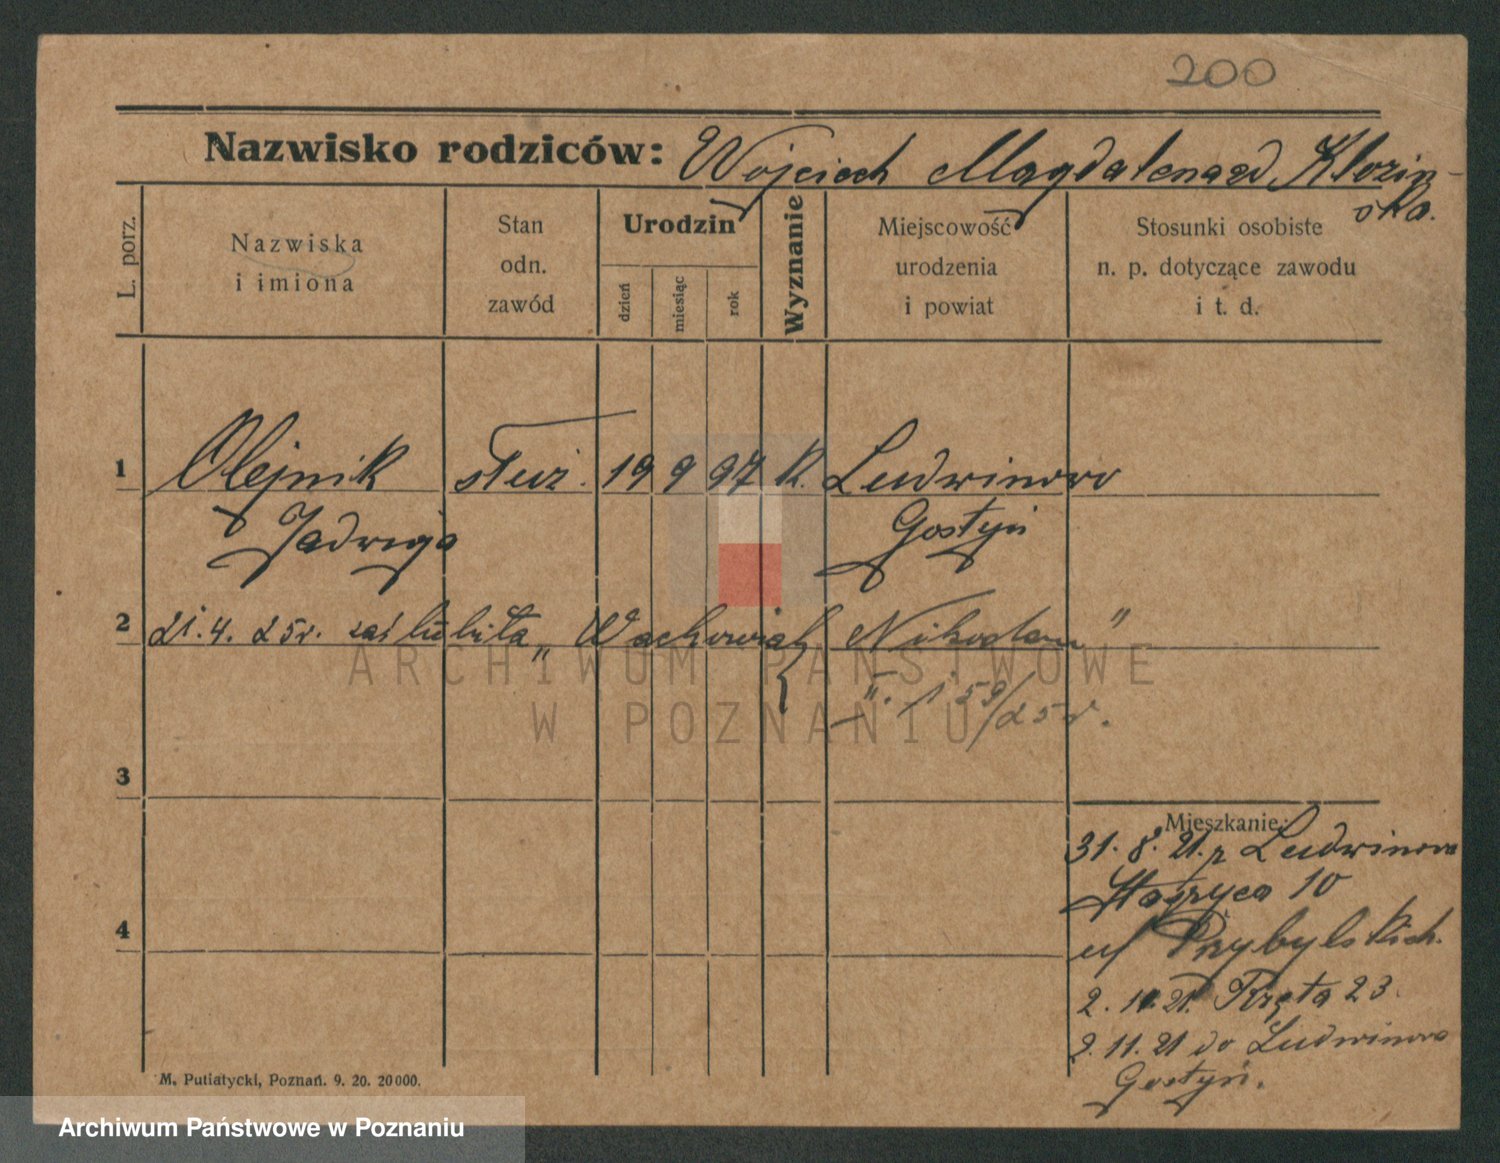 200
Nazwisko rodziców: Wojciech Magdalena zd. Kłozin-
ska.
L. porz.
Nazwiska
i imiona
Stan
odn.
zawód
Urodzin
dzień
miesiąc
rok
Wyznanie
Miejscowość
urodzenia
i powiat
Stosunki osobiste
n. p. dotyczące zawodu
i t. d.
1 Olejnik służ. 19 9 97 k. Ludwinowo
Jadwiga Gostyń
2 21.4.25r. zaślubiła „Wachowiak Nikodem"
159/25 r.
ARCHIWUM PAŃSTWOWE
W POZNANIU
3
Mieszkanie:
31. 8. 21. z Ludwinowa
10
u/ Przybylskich.
4
2. 10. 21. Kręta 23.
2. 11. 21 do Ludwinowa
Gostyń.
M. Putiatycki, Poznań. 9. 20. 20000.
Archiwum Państwowe w Poznaniu